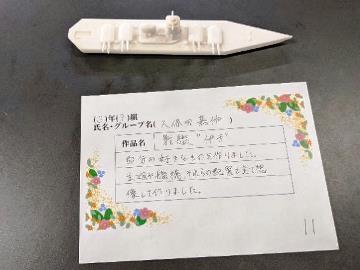 年 組
氏名・グループ名(久保田
作品名 戦艦
自分の好きなものを作りました。
主砲や艦橋、それらの配置まで想
像して作りました。
11